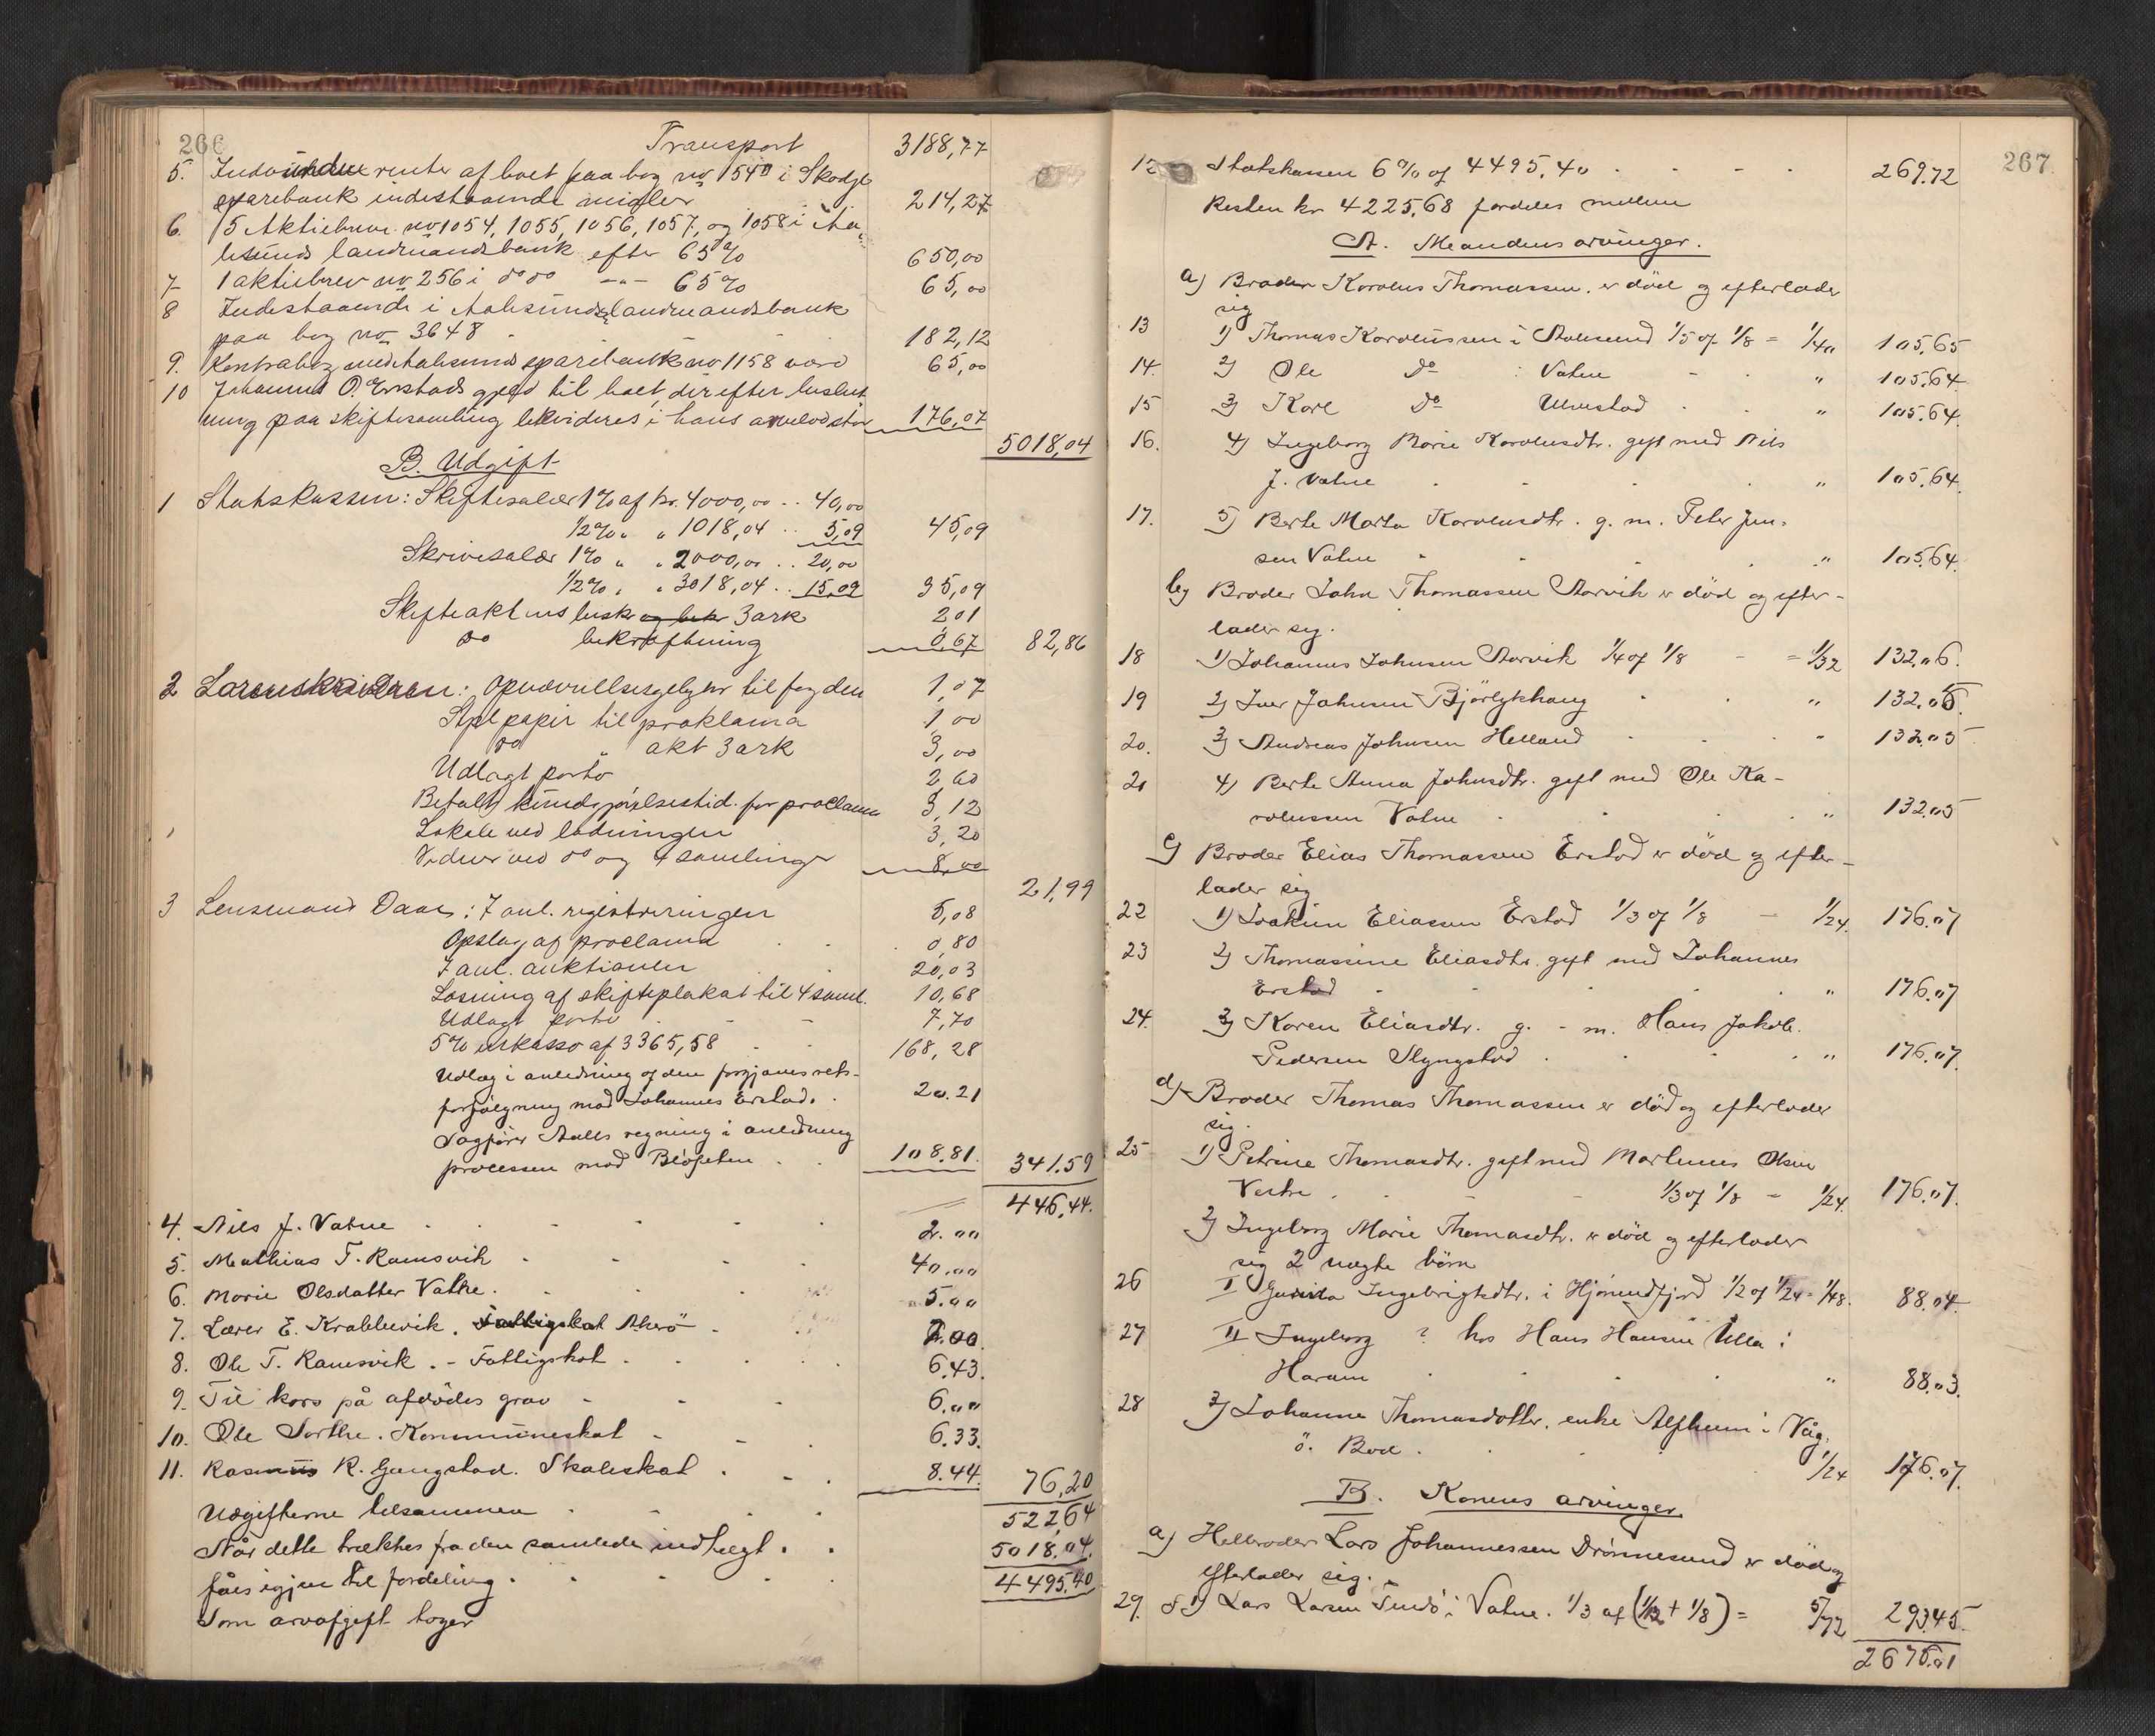 266
Transport 3188,77
5. renter af boet paa bog no 1540 i Skodje
sparebank indestaaende midler 214,27
6. 5 Aktiebreve no 1054, 1055, 1056, 1057, og 1058 i Aa-
lesunds landmandsbank efter 65% 650,00
7 1 aktiebrev no 256 i do do -"- 65% 65,00
8 Indestaaende i Aalesunds landmandsbank
paa bog no 3648 182,12
9. Kontrabog med Aalesunds sparebank no 1158 værd 65,00
10 Johannes O. Erstads gjeld til boet, der efter beslut
ning paa skiftesamling likvideres i hans arvelod stor 176,07
5018,04
B. Udgift
1 Statskassen: Skiftesalær 1% af kr. 4000,00 .. 40,00
1/2% " " 1018,04 .. 5,09 45,09
Skrivesalær 1% " " 2000,00 .. 20,00
1/2% " " 3018,04 .. 15,09 35,09
Skifteaktens beskr. og bekr. 3 ark 2 01
do bekræftning 0,67 82,86
2 Sorenskriveren: Opnævnelsesgebyr til fogden 1,07
Stpl papir til proklama 1,00
do " akt 3 ark 3,00
Udlagt porto 2 60
Betalt kundgjørelsestid. for proclama 3,12
Lokale ved lodningen 3,20
Vidner ved do og 4 samlinger 8,00
21,99
3 Lensmand Daae: I anl. registreringen 5,08
Opslag af proclama . . . 0,80
I anl. auktionen . . 20,03
Løsning af skifteplakat til 4 saml. 10,68
Udlagt porto . - - 7,70
5% inkasso af 3365,58 - - 168,28
Udlæg i anledning af den forgjæves rets-
forfølgning mod Johannes Erstad. . 20.21
Sagfører Aalls regning i anledning
processen mod . . 108.81. 341.59
446,44.
4. Nils J. Vatne . . . . . . 2.00
5. Mathias T. Ramsvik . . . . 40.00
6. Marie Olsdatter Vatne. . . . 5.00
7. Lærer E. Krablevik. Fattigskat Akerö . 2.00
8. Ole T. Ramsvik . - Fattigskat . . . . 6.43.
9. Til kors på afdödes grav - - - 6.00
10. Ole Sorthe. Kommuneskat - - . 6.33.
11. Rasmus R. Gangstad. Skoleskat . - . 8.44. 76,20
Udgifterne tilsammen . . . 522,64
Når dette trækkes fra den samlede indtægt . . 5018.04.
fåes igjen til fordeling . . . . 4495.40
Som arvafgift tages
267
12 Statskassen 6% af 4495.40 . . - . 269.72
Resten kr 4225,68 fordeles mellem
A. Mandens arvinger.
a) Broder Karolus Thomassen. er död og efterlader
sig
13 1) Thomas Karolussen i Aalesund 1/5 af 1/8 = 1/40 105,65
14. 2) Ole do i Vatne - . " 105.64.
15 3) Karl do Ulvestad . . " 105.64.
16. 4) Ingeborg Marie Karolusdtr. gift med Nils
J. Vatne . . . . " 105.64.
17. 5) Berte Marta Karolusdtr. g. m. Peter Jen-
sen Vatne . . . . " 105.64.
b) Broder John Thomassen Aarvik er död og efter-
lader sig.
18 1) Johannes Johnsen Aarvik 1/4 af 1/8 - = 1/32 132.06.
19 2) Iver Johnsen Björlykhaug . . " 132.05.
20. 3) Andreas Johnsen Helland . . . " 132.05
21 4) Berte Anna Johnsdtr. gift med Ole Ka-
rolussen Vatne . . . . " 132.05
c) Broder Elias Thomassen Erstad er död og efter-
lader sig
22 1) Joakim Eliassen Erstad 1/3 af 1/8 - 1/24. 176.07
23 2) Thomassine Eliasdtr. gift med Johannes
Erstad . . . . " 176.07
24. 3) Karen Eliasdtr. g. - m. Hans Jakob.
Pedersen Slyngstad . . . . " 176.07.
d) Broder Thomas Thomassen er död og efterlader
sig.
25 1) Petrine Thomasdtr. gift med Martinus Olsen
. . - - 1/3 af 1/8 - 1/24. 176.07.
2) Ingeborg Marie Thomasdtr. er död og efterlader
sig 2 uægte börn
26 I Ingebrigtsdtr. i Hjörundfjord 1/2 af 1/24 = 1/48. 88.04.
27 II Ingeborg ? hos Hans Hansen Ulla i
Haram . . . . " 88.03.
28 3) Johanne Thomasdatter. enke i Våg,
ö. Bod . . . . 1/24 176.07.
B. Konens arvinger.
a) Helbroder Lars Johannessen Drönnesund er död og
efterlader sig.
29. 1) Lars Larsen i Vatne. 1/3 af (1/12 + 1/8) = 5/72 293.45.
2676.01